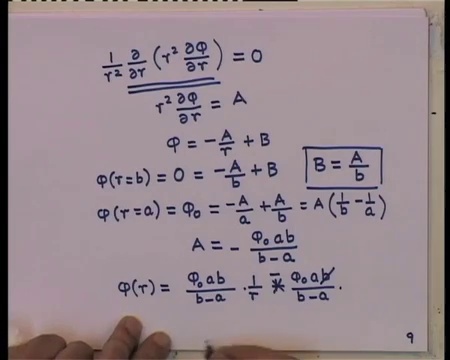 1/r² ∂/∂r (r² ∂φ/∂r) = 0
r² ∂φ/∂r = A
φ = -A/r + B
φ(r=b) = 0 = -A/b + B B = A/b
φ(r=a) = φ₀ = -A/a + A/b = A(1/b - 1/a)
A = - φ₀ab/b-a
φ(r) = φ₀ab/b-a · 1/r - φ₀ab/b-a .
9